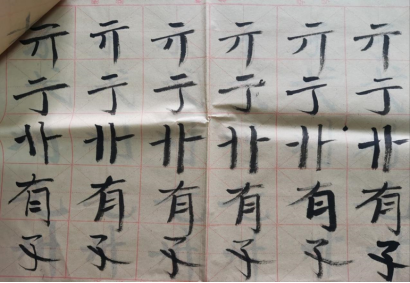 亓亓亓亓亓亓
亍亍亍亍亍亍
有有有有有有
子子子子子子